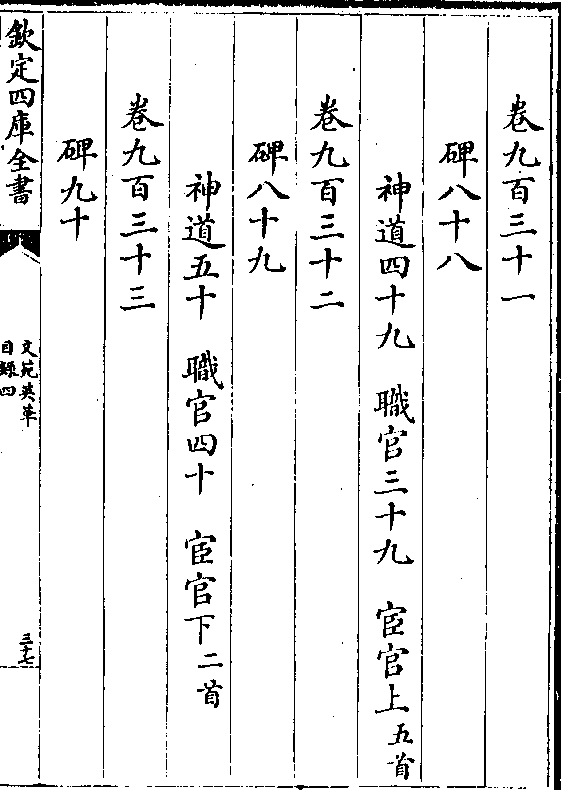 卷九百三十一
碑八十八
神道四十九　職官三十九　宦官上五首
卷九百三十二
碑八十九
神道五十　職官四十　宦官下二首
卷九百三十三
碑九十
欽定四庫全書
文苑英華
目錄四
三十七